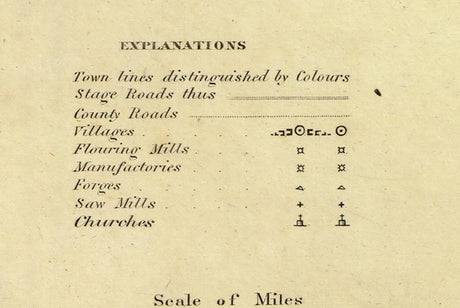 EXPLANATIONS
Town lines distinguished by Colours
Stage Roads thus
County Roads
Villages
Flouring Mills
Manufactories
Forges
Saw Mills
Churches
Scale of Miles